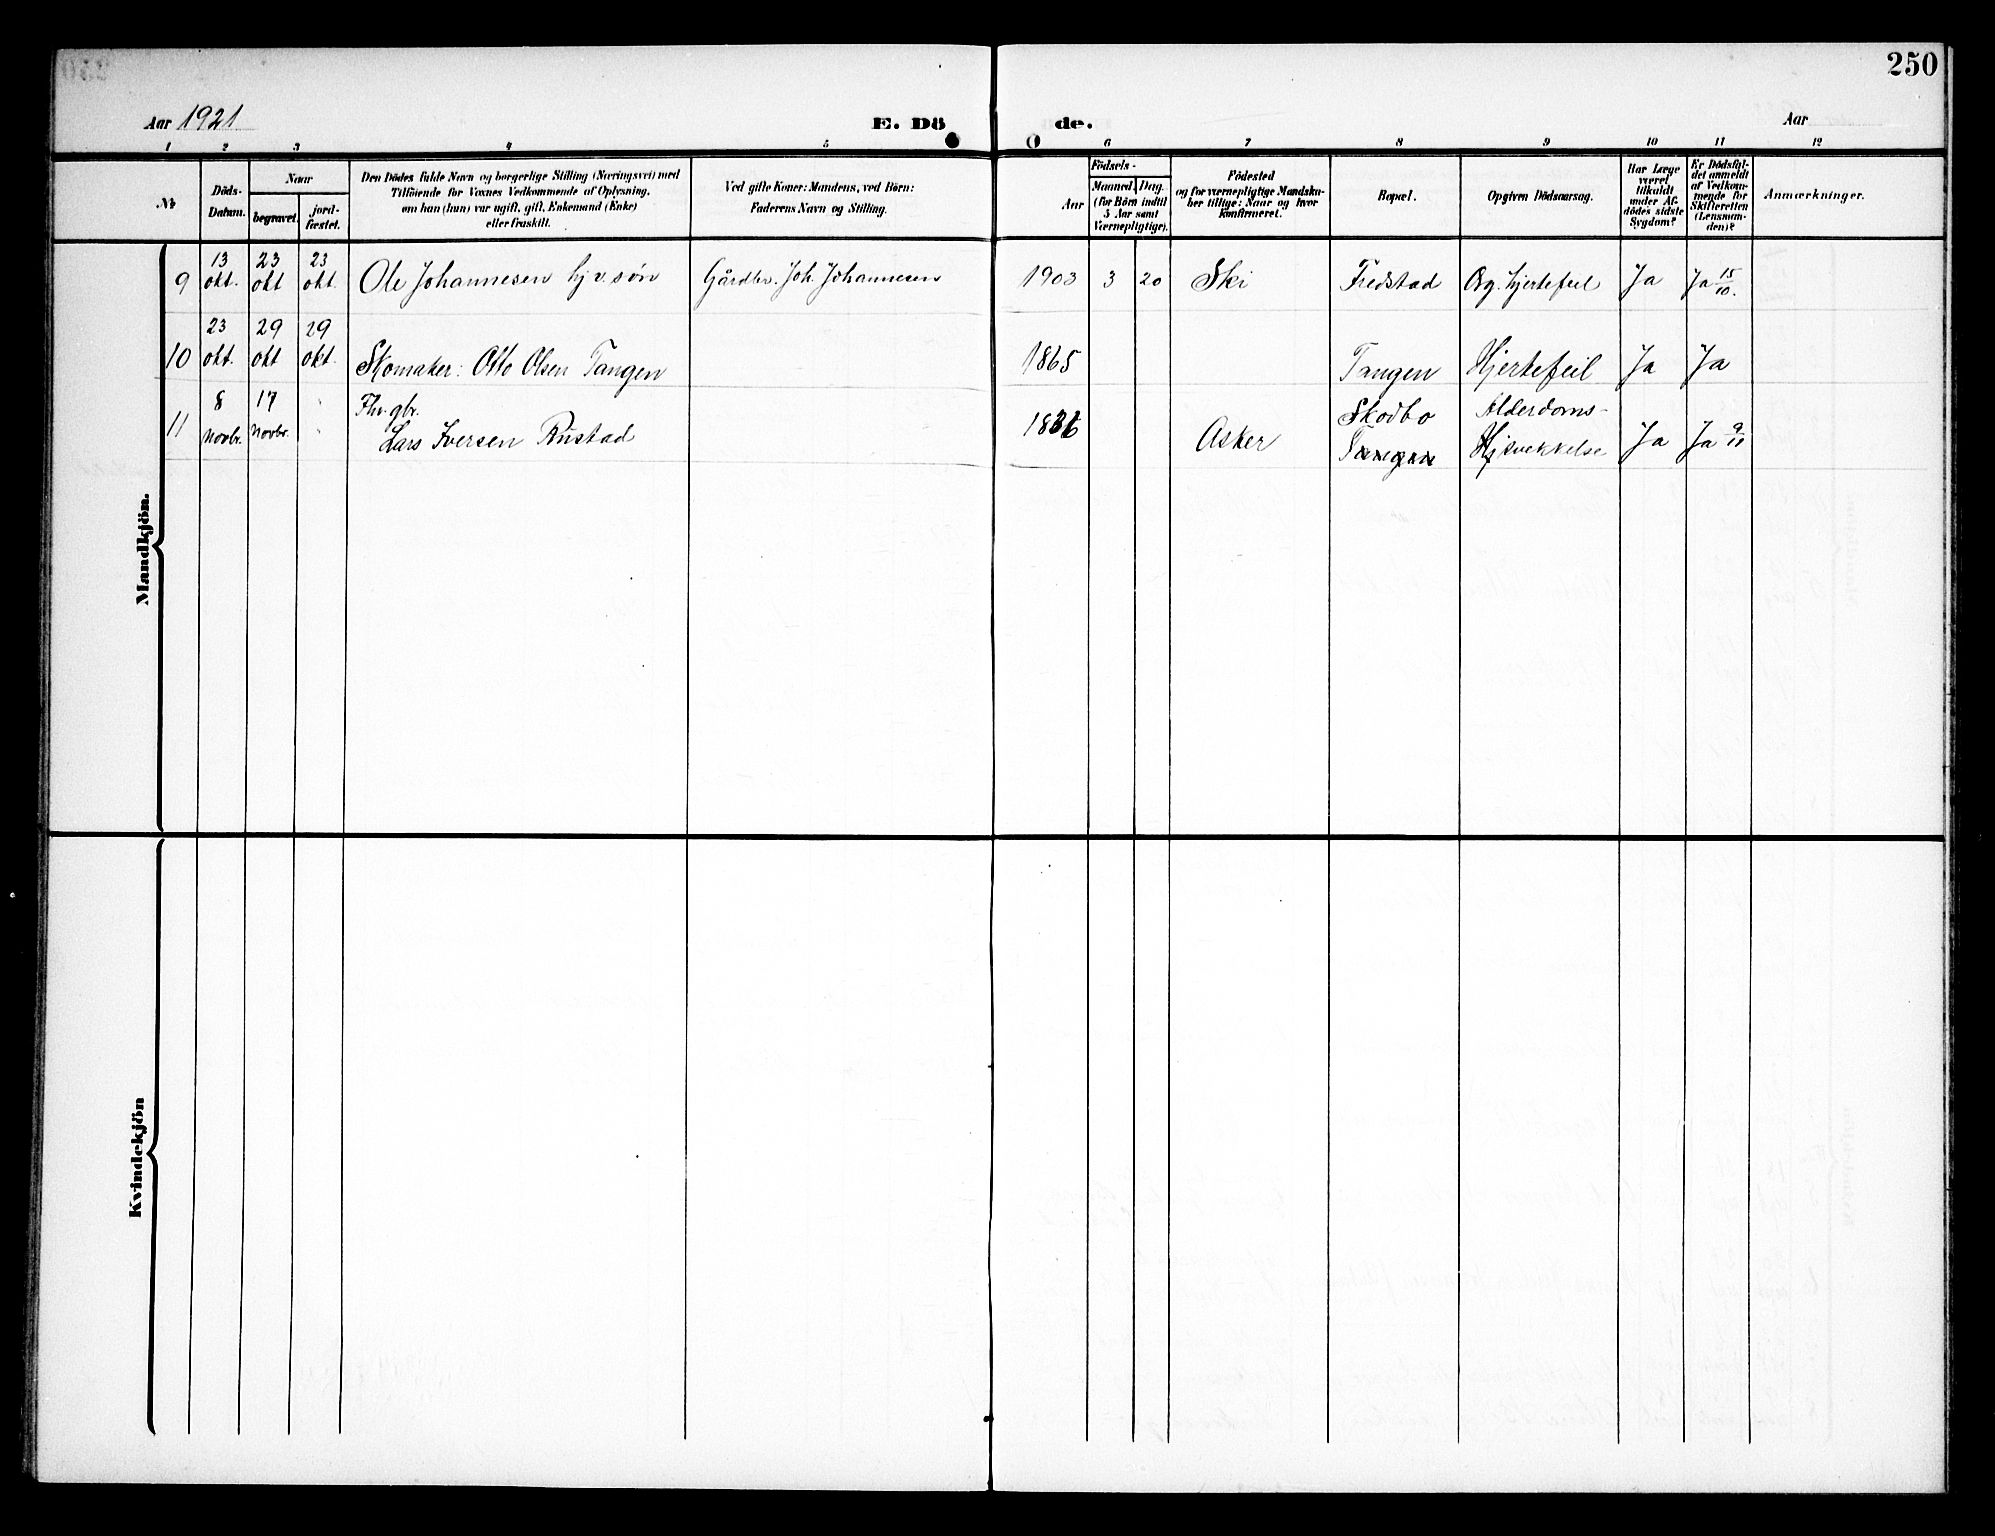 250
Aar 1921 E. Dö de. Aar
1 2 3 4 5 6 7 8 9 10 11 12
No
Döds-
Datum.
Naar
begravet.
jord-
fæstet.
Den Dödes fulde Navn og borgerlige Stilling (Næringsvei) med
Tilföiende for Voxnes Vedkommende af Oplysning,
om han (hun) var ugift, gift, Enkemand (Enke)
eller fraskilt.
Ved gifte Koner: Mandens, ved Börn:
Faderens Navn og Stilling.
Födsels-
Aar
Maaned. Dag.
(for Börn indtil
5 Aar samt
Værnepligtige).
Födested
og for værnepligtige Mandska-
ber tillige: Naar og hvor
konfirmeret.
Bopæl.
Opgiven Dödsaarsag.
Har Læge
været
tilkaldt
under Af-
dödes sidste
Sygdom?
Er Dödsfal-
det anmeldt
af Vedkom-
mende for
Skifteretten
(Lensman-
den)?
Anmærkninger.
Mandkjön.
9 13 okt. 23 okt 23 okt. Ole Johannesen hj v. søn Gårdbr. Joh. Johannesen 1903 3 20 Ski Fredstad Org. hjertefeil Ja Ja 15/10.
10 23 okt. 29 okt 29 okt. Skomaker: Otto Olsen Tangen 1865 Tangen Hjertefeil Ja Ja
11 8 novbr. 17 novbr. Fhv. gbr.
Lars Iversen Rustad Asker Skodbo
Tangen Alderdoms-
svekkelse Ja Ja 9/11
Kvindekjön